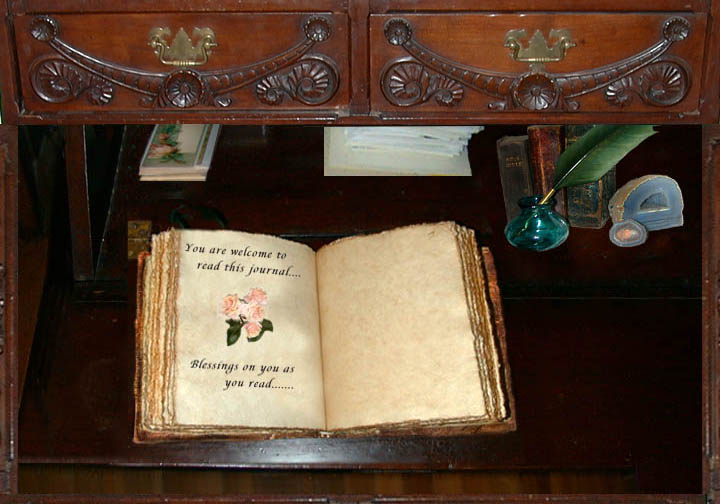 You are welcome to
read this journal....
Blessings on you as
you read.......